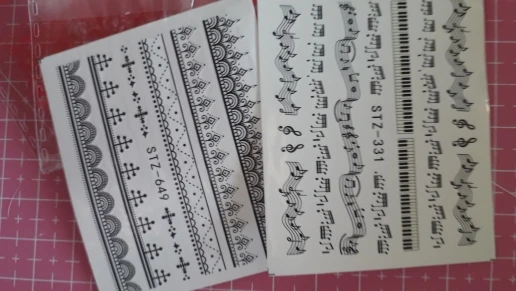 STZ-649
STZ-331